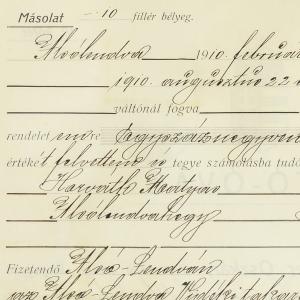 Másolat 10 fillér bélyeg.
Alsólendva 1910. februá
1910. augusztus 22
váltónál fogva
rendeletemre Egyszáznegyven
értékét felvettem s tegye számolásba tudó
Horváth Mátyás
Alsólendvahegy
Fizetendő Alsó-Lendván
Alsó-Lendva Vidéki takar